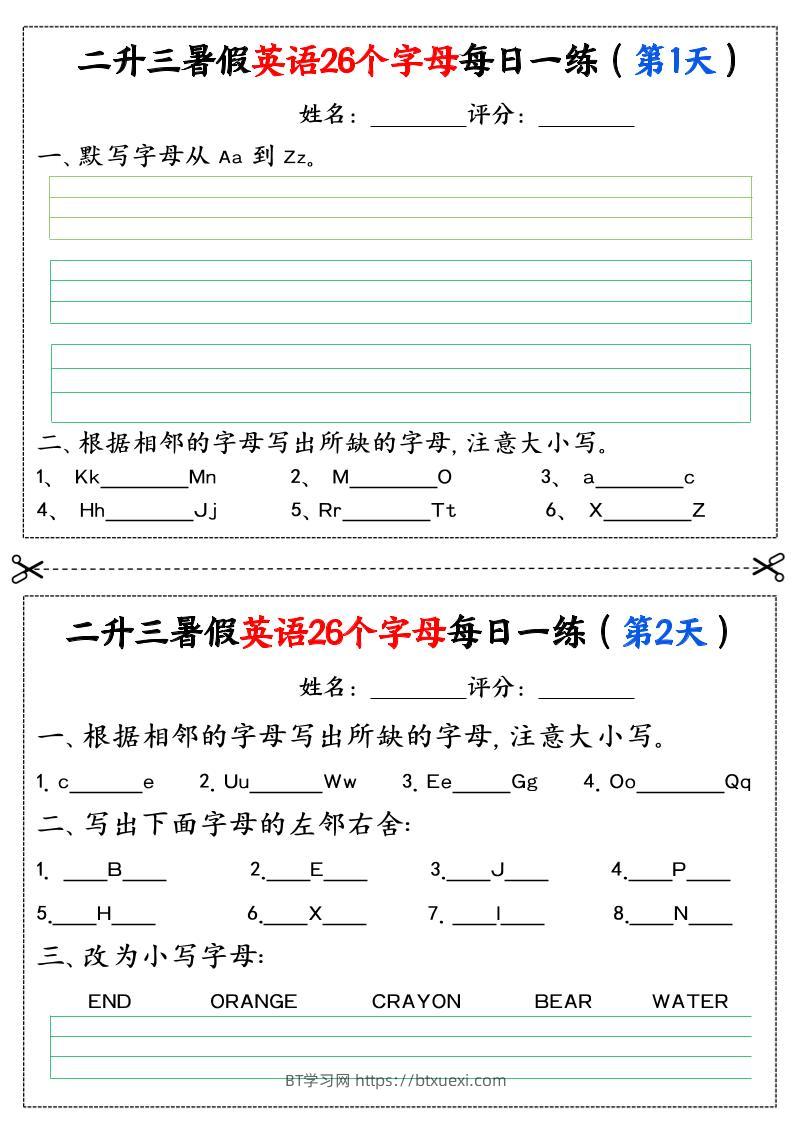 二升三暑假英语26个字母每日一练（第1天）
姓名：________评分：________
一、默写字母从 Aa 到 Zz。
二、根据相邻的字母写出所缺的字母,注意大小写。
1、 Kk________Mn 2、 M________O 3、 a________c
4、 Hh________Jj 5、Rr________Tt 6、 X________Z
二升三暑假英语26个字母每日一练（第2天）
姓名：________评分：________
一、根据相邻的字母写出所缺的字母,注意大小写。
1. c______e 2. Uu______Ww 3. Ee_____Gg 4. Oo________Qq
二、写出下面字母的左邻右舍:
1. ____B____ 2.____E____ 3.____J____ 4.____P____
5.____H____ 6.____X____ 7. ____I____ 8.____N____
三、改为小写字母:
END ORANGE CRAYON BEAR WATER
BT学习网 https://btxuexi.com